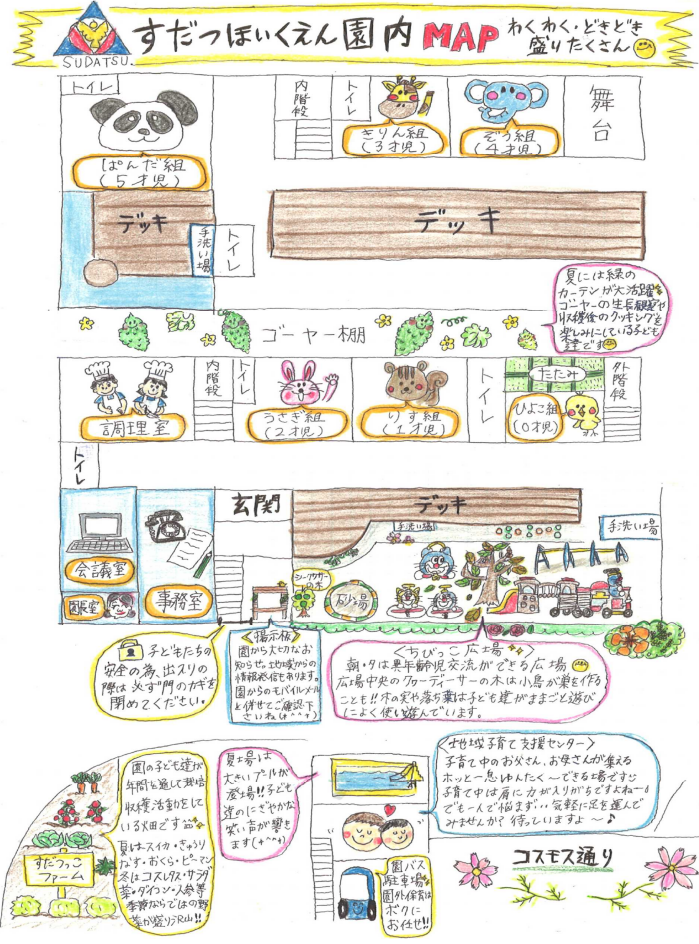 すだつほいくえん園内MAP
わくわく・どきどき
盛りたくさん
SUDATSU.
トイレ
ぱんだ組
(5才児)
内階段
トイレ
きりん組
(3才児)
ぞう組
(4才児)
舞台
デッキ
手洗い場
トイレ
デッキ
夏には緑の
カーテンが大活躍
ゴーヤーの生長観察や
収穫後のクッキングを
楽しみにしている子ども
達です
ゴーヤー棚
調理室
内階段
トイレ
うさぎ組
(2才児)
りす組
(1才児)
トイレ
たたみ
ひよこ組
(0才児)
外階段
トイレ
会議室
園長室
事務室
玄関
デッキ
手洗い場
手洗い場
シークヮーサー
の木
砂場
子どもたちの
安全の為、出入りの
際は必ず門のカギを
閉めてください。
<掲示板>
園から大切なお
知らせや地域からの
情報発信もあります。
園からのモバイルメール
と併せてご確認下
さいね(*^^*)
<ちびっこ広場>
朝・夕は異年齢児交流ができる広場
広場中央のクヮーディーサーの木は小鳥が巣を作る
ことも!!木の実や落ち葉は子ども達がままごと遊び
によく使い遊んでいます。
園の子ども達が
年間を通して栽培
収穫活動をして
いる畑です
夏はスイカ・きゅうり
なす・おくら・ピーマン
冬はコスレタス・サラダ
菜・ダイコン・人参等
季節ならではの野
菜が盛り沢山!!
すだつっこ
ファーム
夏場は
大きいプールが
登場!!子ども
達のにぎやかな
笑い声が響き
ます(*^^*)
<地域子育て支援センター>
子育て中のお父さん、お母さんが集える
ホッと一息ゆんたく〜できる場です
子育て中は肩に力が入りがちですよね〜
でも一人で悩まず‥気軽に足を運んで
みませんか?待っていますよ〜♪
園バス
駐車場
園外保育は
ボクに
お任せ!!
コスモス通り